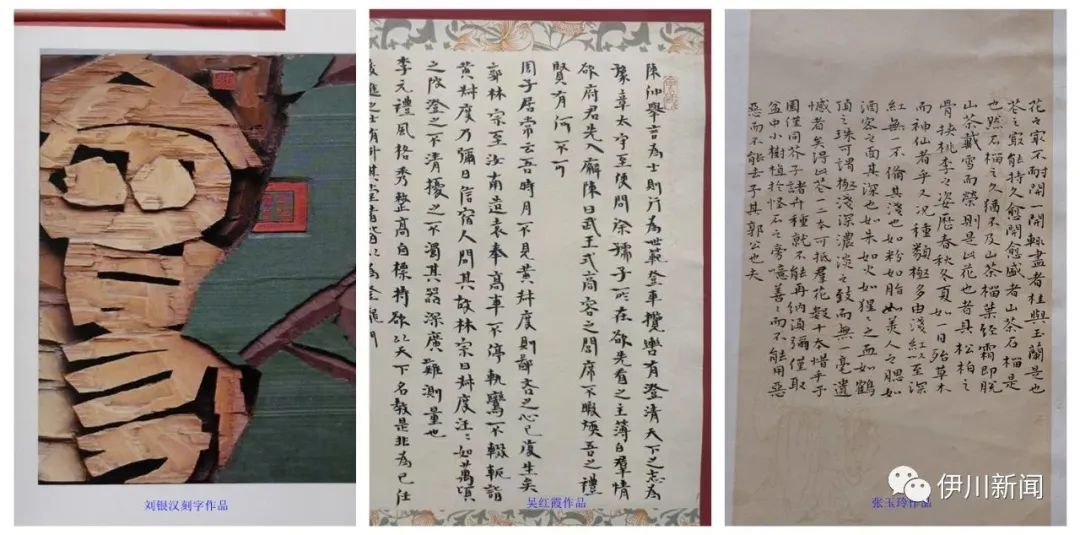 刘银汉刻字作品
陳仲舉言為士則行為世範登車攬轡有澄清天下之志為
豫章太守至便問徐孺子所在欲先看之主薄白羣情
欲府君先入廨陳曰武王式商容之閭席不暇煗吾之禮
賢有何不可
周子居常云吾時月不見黄叔度則鄙吝之心已復生矣
郭林宗至汝南造袁奉高車不停軌鸞不輟軛詣
黄叔度乃彌日信宿人問其故林宗曰叔度汪〻如萬頃
之陂澄之不清擾之不濁其器深廣難測量也
李元禮風格秀整高自標持欲以天下名教是非為己任
吴红霞作品
花之最不耐開一開輒盡者桂與玉蘭是也
花之最能持久愈開愈盛者山茶石榴是
也然石榴之久猶不及山茶榴葉經霜即脱
山茶戴雪而榮則是此花也者具松柏之
骨挾桃李之姿歷春秋冬夏如一日殆草木
而神仙者乎又况種類極多由淺紅以至深
紅無一不備其淺也如粉如脂如美人之腮如
酒客之面其深也如朱如火如猩〻之血如鶴
頂之珠可謂極淺深濃淡之致而無一毫遺
憾者矣得此花一二本可抵羣花數十本惜乎予
園僅同芥子諸卉種就不能再納須彌僅取
盆中小樹植於怪石之旁噫善〻而不能用惡
惡而不能去予其郭公也夫
张玉玲作品
伊川新闻